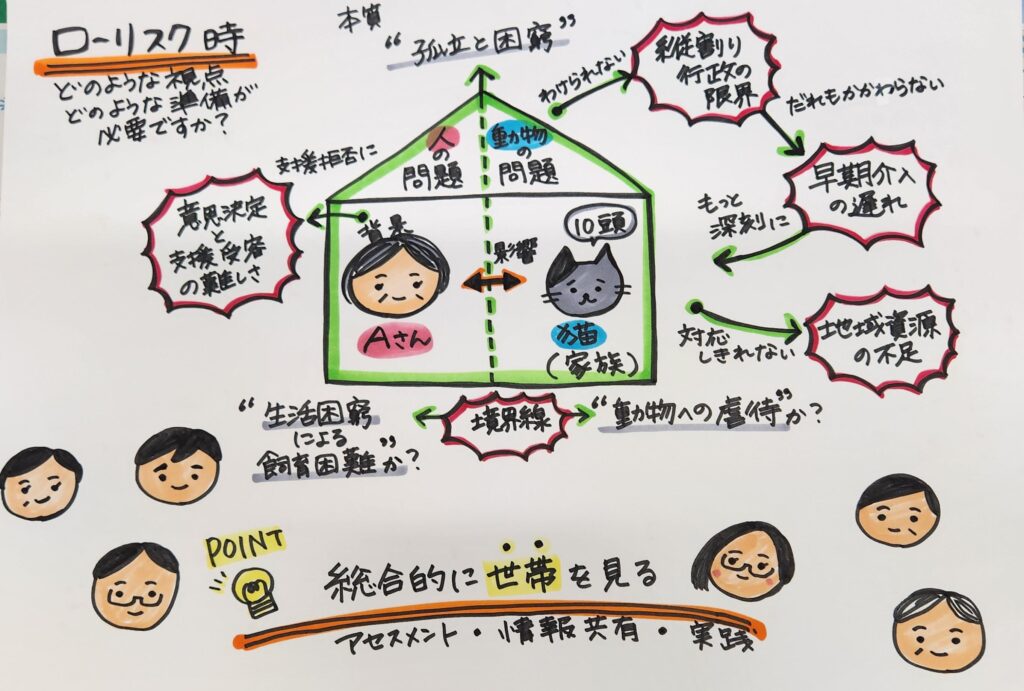 ローリスク時
どのような視点
どのような準備が
必要ですか？
本質
“孤立と困窮”
わけられない
縦割り
行政の
限界
だれもかかわらない
早期介入
の遅れ
もっと
深刻に
対応
しきれない
地域資源
の不足
支援拒否に
意思決定
と
支援受容
の難しさ
人の
問題
動物の
問題
背景
影響
10頭
Aさん
猫
(家族)
“生活困窮
による
飼育困難”か？
境界線
“動物への虐待”か？
POINT
総合的に世帯を見る
アセスメント・情報共有・実践